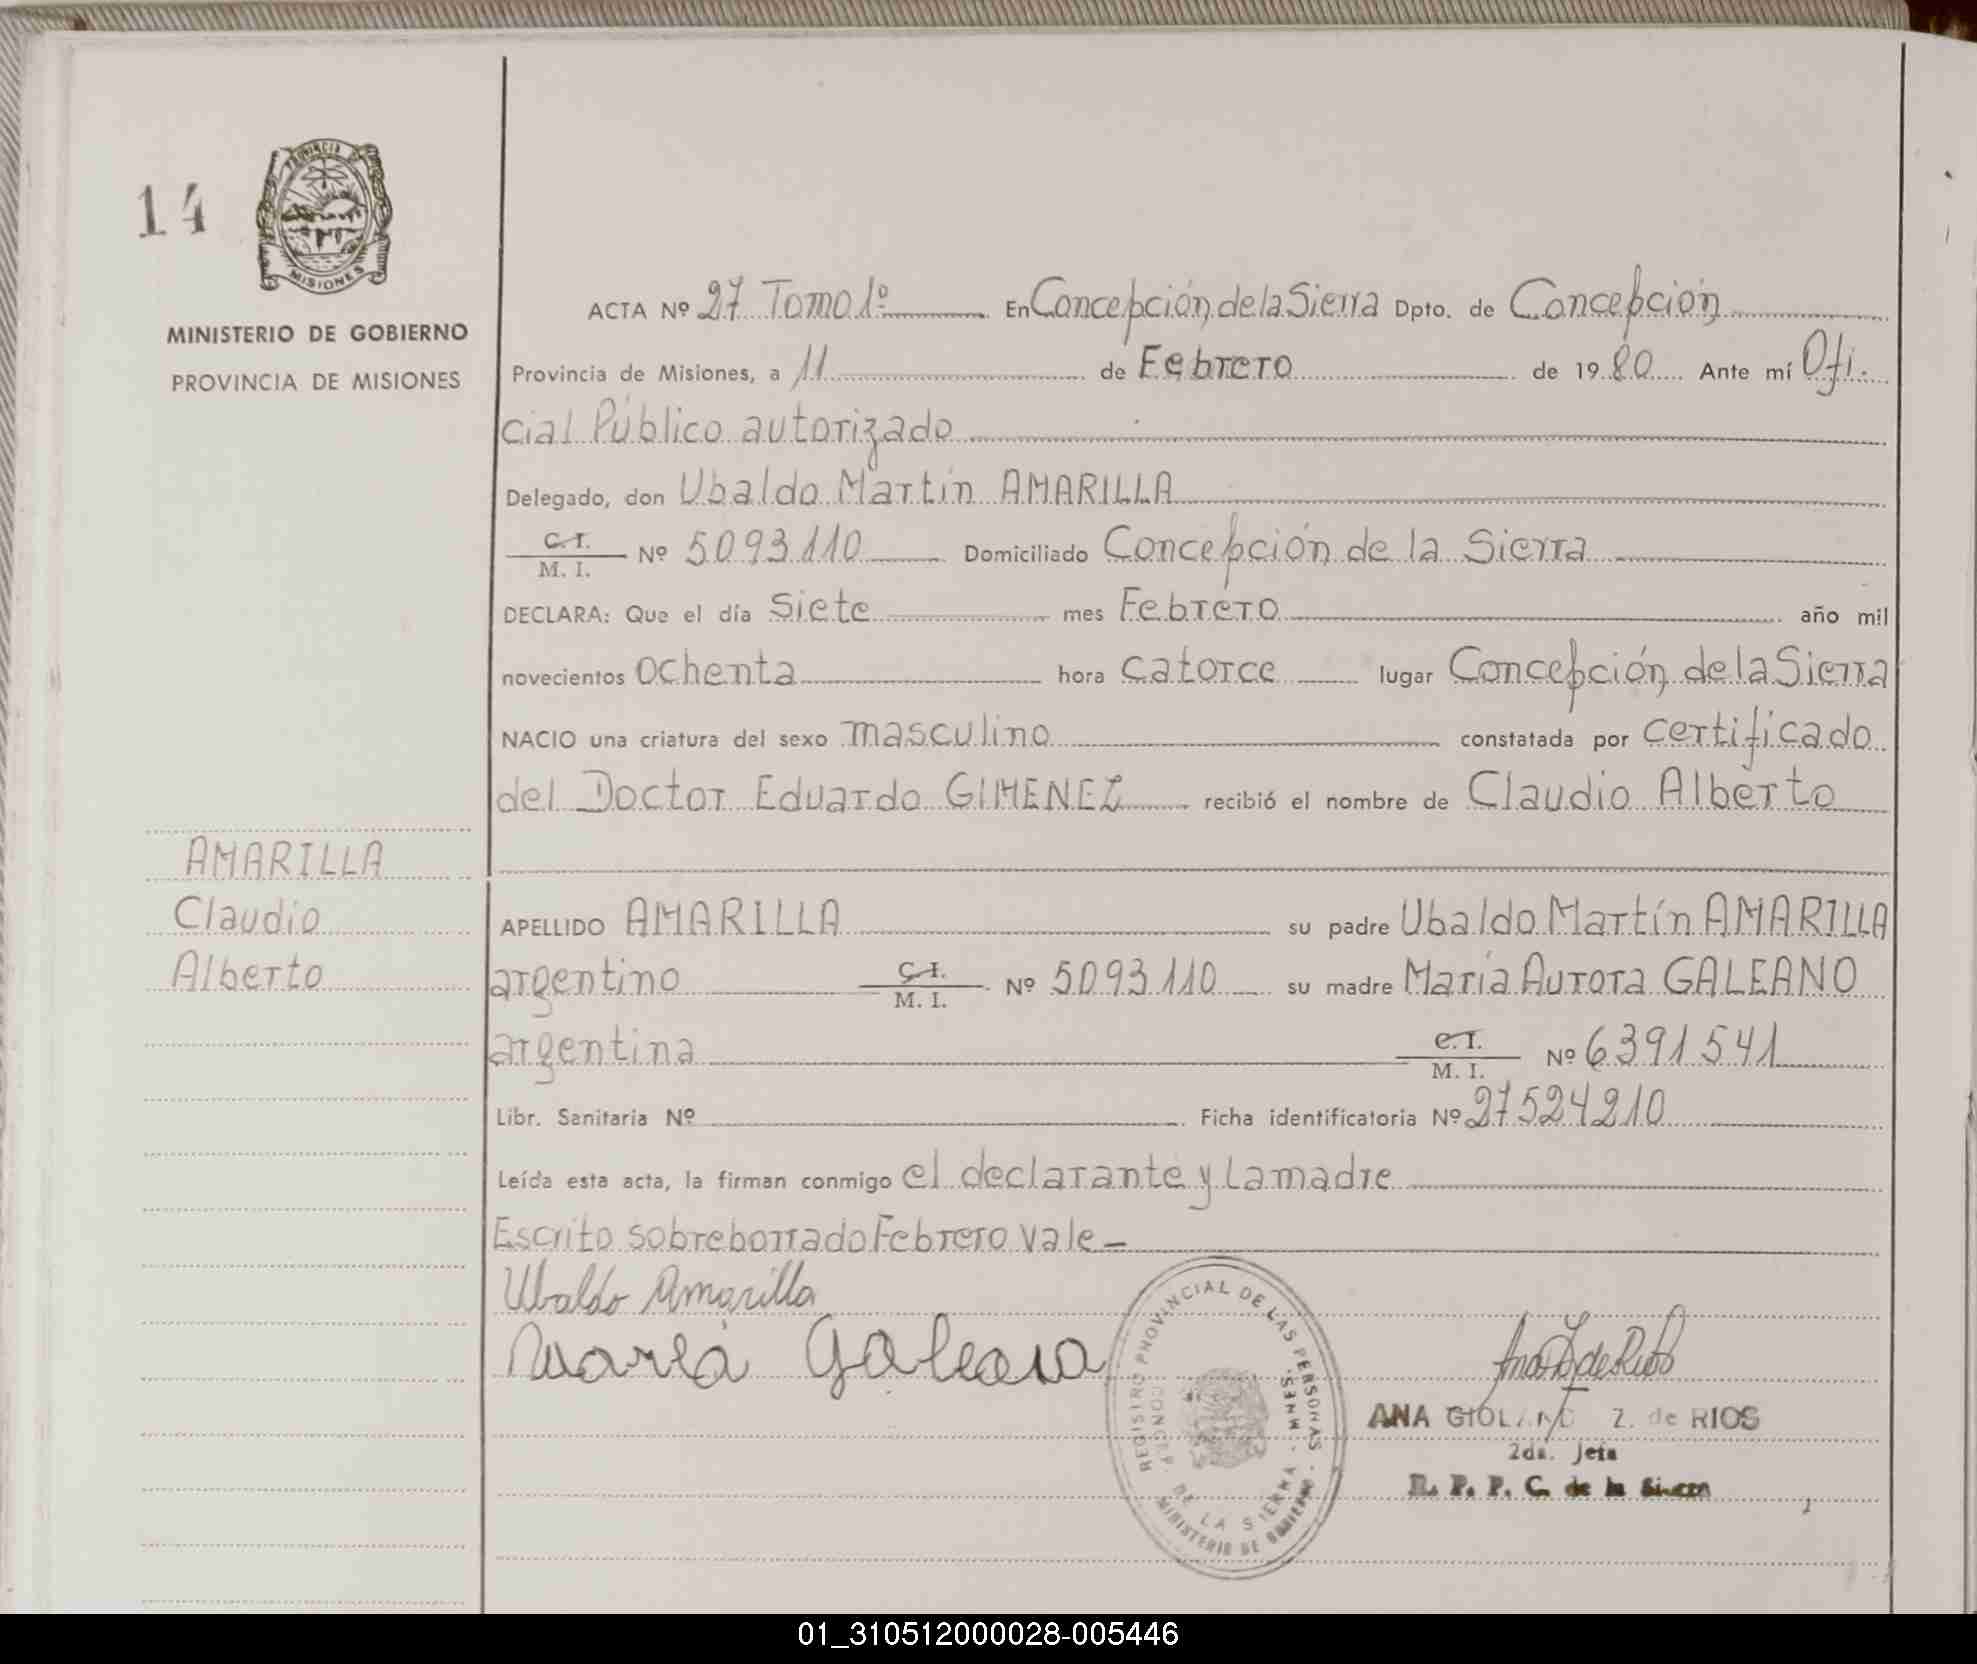 14
PROVINCIA DE
MISIONES
MINISTERIO DE GOBIERNO
PROVINCIA DE MISIONES
ACTA Nº 27 Tomo 1º En Concepción de la Sierra Dpto. de Concepción
Provincia de Misiones, a 11 de Febrero de 1980 Ante mí Ofi.
cial Público autorizado
Delegado, don Ubaldo Martín AMARILLA
C.I.
M. I. Nº 5093110 Domiciliado Concepción de la Sierra
DECLARA: Que el día Siete mes Febrero año mil
novecientos ochenta hora catorce lugar Concepción de la Sierra
NACIO una criatura del sexo masculino constatada por certificado
del Doctor Eduardo GIMENEZ recibió el nombre de Claudio Alberto
AMARILLA
Claudio
Alberto
APELLIDO AMARILLA su padre Ubaldo Martín AMARILLA
argentino C.I. M. I. Nº 5093110 su madre María Aurora GALEANO
argentina C.I. M. I. Nº 6391541
Libr. Sanitaria Nº Ficha identificatoria Nº 27524210
Leída esta acta, la firman conmigo el declarante y la madre
Escrito sobreborrado Febrero vale –
Ubaldo Amarilla
María Galeano
REGISTRO PROVINCIAL DE LAS PERSONAS
CONCEP. DE LA SIERRA - MNES.
MINISTERIO DE GOBIERNO
ANA Z. de RIOS
2da. Jefa
R. P. P. C. de la Sierra
01_310512000028-005446